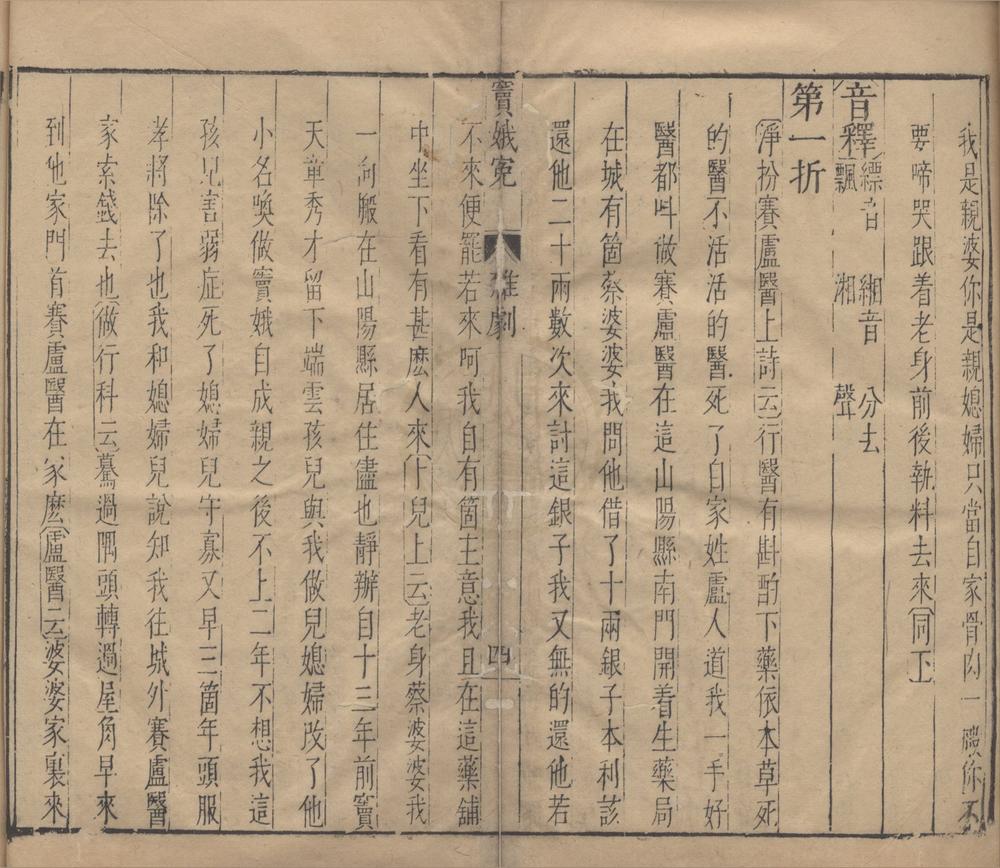 我是親婆你是親媳婦只當自家骨肉一般你不
要啼哭跟着老身前後執料去來同下
音釋
縹音飄 緗音湘 分去聲
第一折
淨扮賽盧醫上詩云行醫有斟酌下藥依本草死
的醫不活活的醫死了自家姓盧人道我一手好
醫都呌做賽盧醫在這山陽縣南門開着生藥局
在城有箇蔡婆婆我問他借了十兩銀子本利該
還他二十兩數次來討這銀子我又無的還他若
竇娥冤 雜劇 四
不來便罷若來呵我自有箇主意我且在這藥舖
中坐下看有甚麽人來卜兒上云老身蔡婆婆我
一向搬在山陽縣居住儘也靜辦自十三年前竇
天章秀才留下端雲孩兒與我做兒媳婦改了他
小名喚做竇娥自成親之後不上二年不想我這
孩兒害弱症死了媳婦兒守寡又早三箇年頭服
孝將除了也我和媳婦兒說知我往城外賽盧醫
家索錢去也做行科云驀過隅頭轉過屋角早來
到他家門首賽盧醫在家麽盧醫云婆婆家裏來